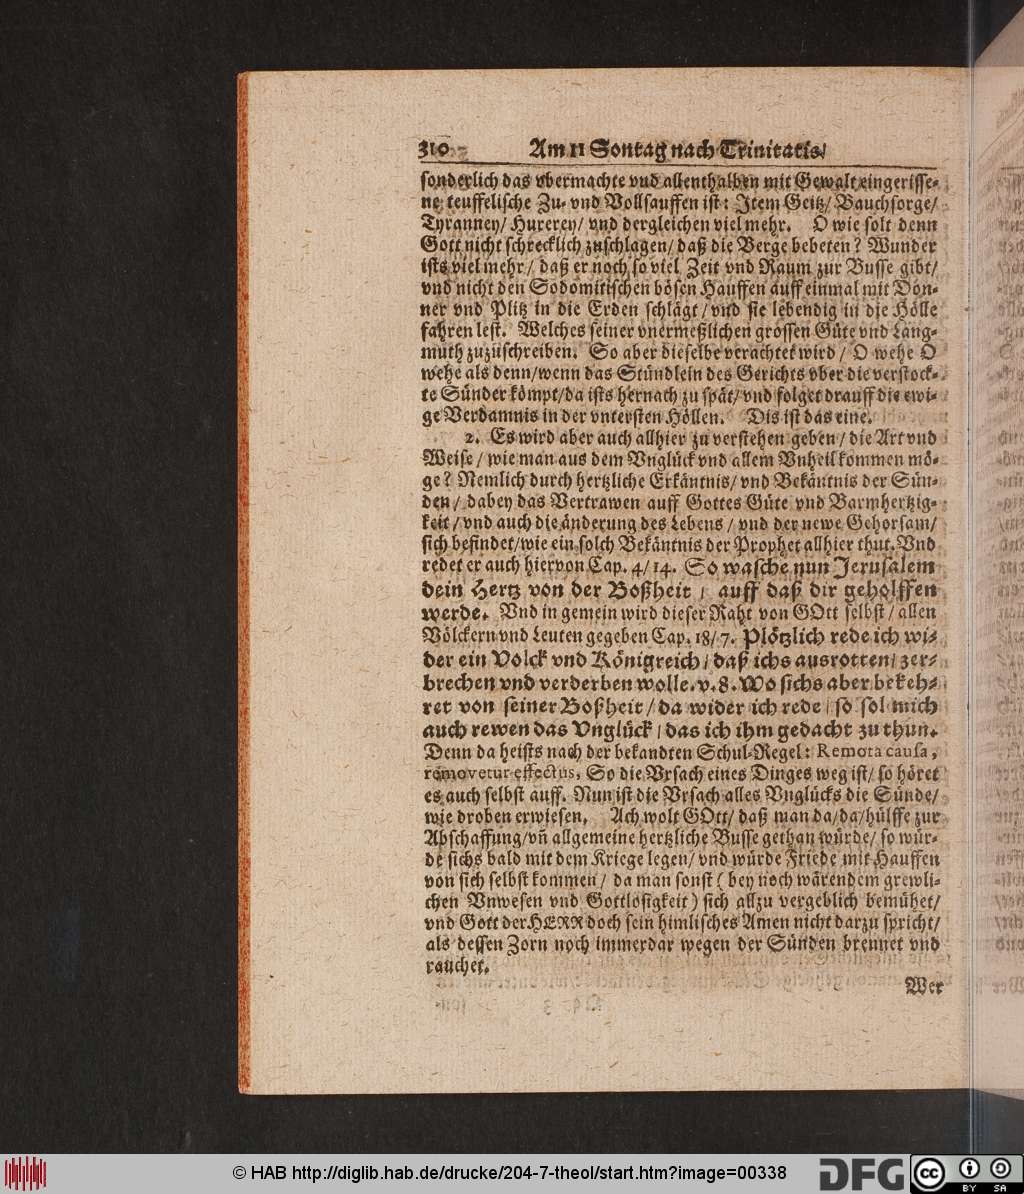 310 Am 11 Sontag nach Trinitatis/
sonderlich das vbermachte vnd allenthalben mit Gewalt eingerisse-
ne teuffelische Zu- vnd Vollsauffen ist: Item Geitz/ Bauchsorge/
Tyranney/ Hurerey/ vnd dergleichen viel mehr. O wie solt denn
Gott nicht schrecklich zuschlagen/ daß die Berge bebeten? Wunder
ists viel mehr/ daß er noch so viel Zeit vnd Raum zur Busse gibt/
vnd nicht den Sodomitischen bösen Hauffen auff einmal mit Don-
ner vnd Plitz in die Erden schlägt/ vnd sie lebendig in die Hölle
fahren lest. Welches seiner vnermeßlichen grossen Güte vnd Lang-
muth zuzuschreiben. So aber dieselbe verachtet wird/ O wehe O
wehe als denn/ wenn das Stündlein des Gerichts vber die verstock-
te Sünder kömpt/ da ists hernach zu spät/ vnd folget drauff die ewi-
ge Verdamnis in der vntersten Höllen. Dis ist das eine.
2. Es wird aber auch allhier zu verstehen geben/ die Art vnd
Weise/ wie man aus dem Vnglück vnd allem Vnheil kommen mö-
ge? Nemlich durch hertzliche Erkäntnis/ vnd Bekäntnis der Sün-
den/ dabey das Vertrawen auff Gottes Güte vnd Barmhertzig-
keit/ vnd auch die änderung des Lebens/ vnd der newe Gehorsam/
sich befindet/ wie ein solch Bekäntnis der Prophet allhier thut. Vnd
redet er auch hiervon Cap. 4/ 14. So wasche nun Jerusalem
dein Hertz von der Boßheit/ auff daß dir geholffen
werde. Vnd in gemein wird dieser Raht von GOtt selbst/ allen
Völckern vnd Leuten gegeben Cap. 18/ 7. Plötzlich rede ich wi-
der ein Volck vnd Königreich/ daß ichs ausrotten/ zer-
brechen vnd verderben wolle. v. 8. Wo sichs aber bekeh-
ret von seiner Boßheit/ da wider ich rede/ so sol mich
auch rewen das Vnglück/ das ich ihm gedacht zu thun.
Denn da heists nach der bekandten Schul-Regel: Remota causa,
removetur effectus, So die Vrsach eines Dinges weg ist/ so höret
es auch selbst auff. Nun ist die Vrsach alles Vnglücks die Sünde/
wie droben erwiesen. Ach wolt GOtt/ daß man da/ da/ hülffe zur
Abschaffung/ vñ allgemeine hertzliche Busse gethan würde/ so wür-
de sichs bald mit dem Kriege legen/ vnd würde Friede mit Hauffen
von sich selbst kommen/ da man sonst (bey noch wärendem grewli-
chen Vnwesen vnd Gottlosigkeit) sich allzu vergeblich bemühet/
vnd Gott der HERR doch sein himlisches Amen nicht darzu spricht/
als dessen Zorn noch immerdar wegen der Sünden brennet vnd
rauchet.
Wer
© HAB http://diglib.hab.de/drucke/204-7-theol/start.htm?image=00338
DFG cc BY SA